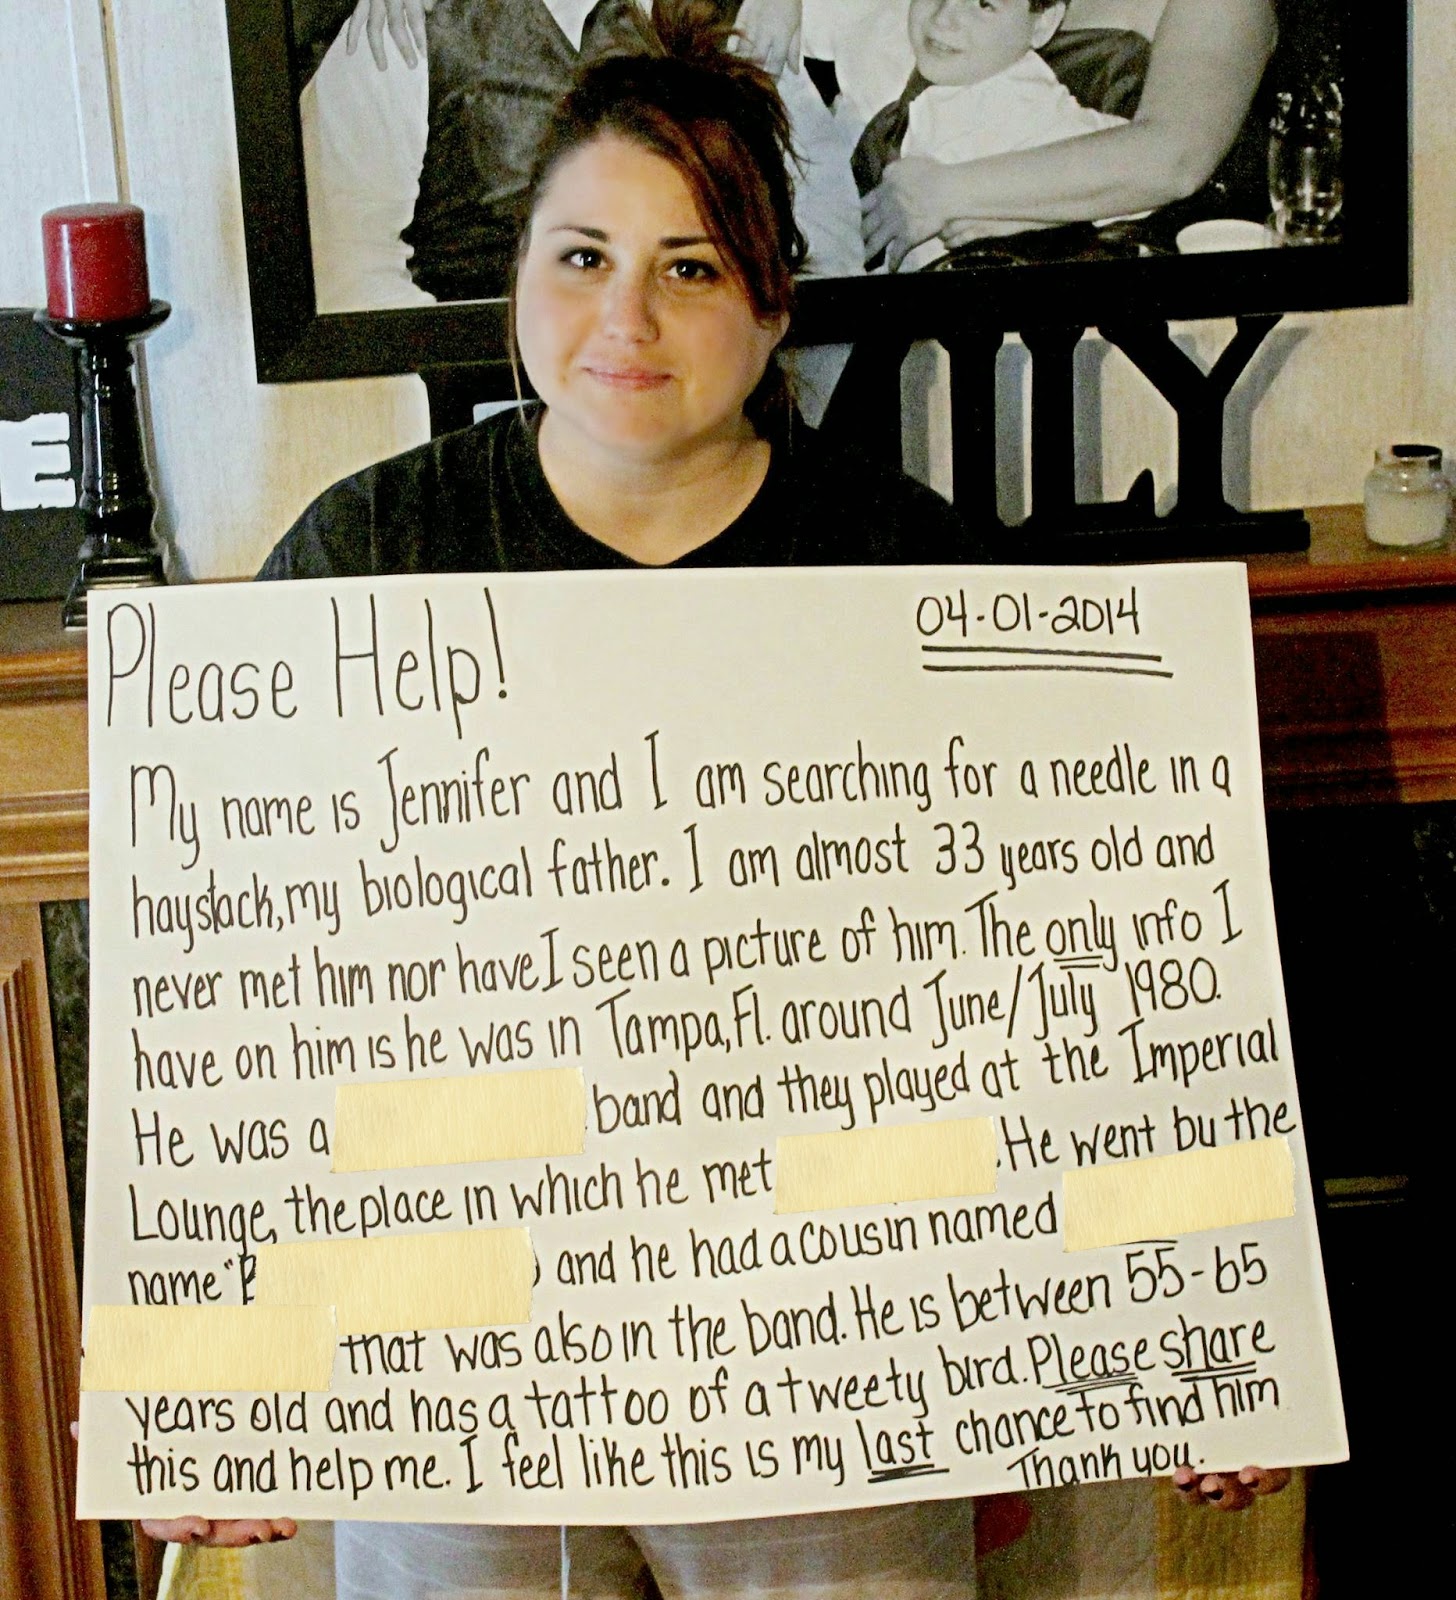 E
FAMILY
Please Help!
04-01-2014
My name is Jennifer and I am searching for a needle in a
haystack, my biological father. I am almost 33 years old and
never met him nor have I seen a picture of him. The only info I
have on him is he was in Tampa, Fl. around June/July 1980.
He was a band and they played at the Imperial
Lounge, the place in which he met . He went by the
name "B ) and he had a cousin named
that was also in the band. He is between 55-65
years old and has a tattoo of a tweety bird. Please share
this and help me. I feel like this is my last chance to find him
Thank you.